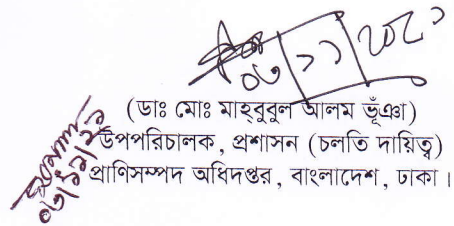 ০৩/১১/২০২১
(ডাঃ মোঃ মাহবুবুল আলম ভূঁঞা)
উপপরিচালক, প্রশাসন (চলতি দায়িত্ব)
প্রাণিসম্পদ অধিদপ্তর, বাংলাদেশ, ঢাকা।